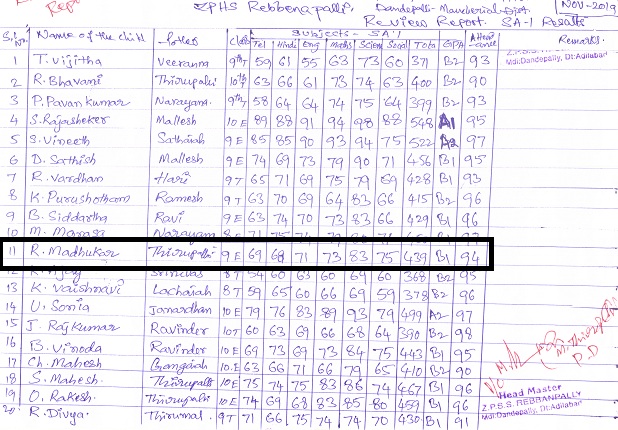 Report
ZPHS Rebbenapally, Dandepally-Mancherial-Dist. NOV-2019
Review Report. SA-1 Results
Subjects - SA-1
S.l No. Name of the child Father Class Tel Hindi Eng maths Scien Social Total GPA Attend-ance Remarks.
Z.P.S.S.
Mdl:Dandepally, Dt:Adilabad
1 T. Vijitha Veeranna 9thT 59 61 55 63 73 60 371 B2 93
2 R. Bhavani Thirupathi 10thT 63 66 61 73 74 63 400 B2 90
3 P. Pavan kumar Narayana. 9thT 58 64 64 74 75 64 399 B2 93
4 S. Rajasheker Mallesh 10 E 89 88 91 94 98 88 548 A1 95
5 S. Vineeth Sathaiah 9 E 85 85 90 93 94 75 522 A2 97
6 D. Sathish Mallesh 9 E 74 69 73 79 90 71 456 B1 95
7 R. Vardhan Hari 9 T 65 71 69 75 79 69 428 B1 93
8 K. Purushotham Ramesh 9 T 63 70 69 64 83 66 415 B2 96
9 B. Siddartha Ravi 9 E 63 74 70 73 83 66 429 B1 96
10 M. Narayana 8 E 71 75 74
11 R. Madhukar Thirupathi 9 E 69 68 71 73 83 75 439 B1 94
Srinivas 8 T 54 60 63 60 69 60 368 B2 95
13 K. Vaishnavi Lachaiah 8 T 59 65 60 66 69 59 378 B2 96
14 U. Sonia Janardhan 10 E 79 76 83 89 93 79 499 A2 97
15 J. Raj Kumar Ravinder 10T 60 63 69 66 68 64 390 B2 98
16 B. Vinoda Ravinder 10 E 69 73 69 73 84 75 443 B1 95
17 Ch. Mahesh Gangaiah 10.E 63 66 71 66 79 65 410 B2 90
18 S. Mahesh. Thirupathi 10 E 75 74 75 83 86 74 467 B1 96
19 O. Rakesh. Thirupathi 10 E 74 69 68 83 85 80 459 B1 96
20 R. Divya. Thirumal 9T 71 66 75 74 74 70 430 B1 91
P.D
Head Master
Z.P.S.S. REBBANPALLY
Mdl:Dandepally, Dt:Adilabad